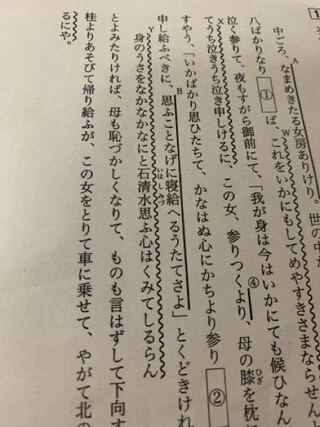 1
中ごろ、なまめきたる女房ありけり。世の中
A
八ばかりなり ① ば、これをいかにもしてめやすきさまならせんと
W
泣く参りて、夜もすがら御前にて、「我が身は今はいかにても候ひなん
X
てうち泣きうち泣き申しけるに、この女、参りつくより、母の膝を枕に
④
ひざ
すやう、「いかばかり思ひたちて、かなはぬ心にかちより参り ②
B
申し給ふべきに、思ふことなげに寝給へるうたてさよ」とくどきけれ
Y
身のうさをなかなかなにと石清水思ふ心はくみてしるらん
いはしみづ
とよみたりければ、母も恥づかしくなりて、ものも言はずして下向す
桂よりあそびて帰り給ふが、この女をとりて車に乗せて、やがて北の
るにや。